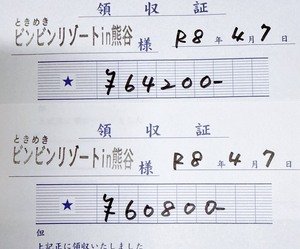 領収証
ときめき
ビンビンリゾートin熊谷 様 R8年4月7日
★ ¥64200-
領収証
ときめき
ビンビンリゾートin熊谷 様 R8年4月7日
★ ¥60800-
但
上記正に領収いたしました